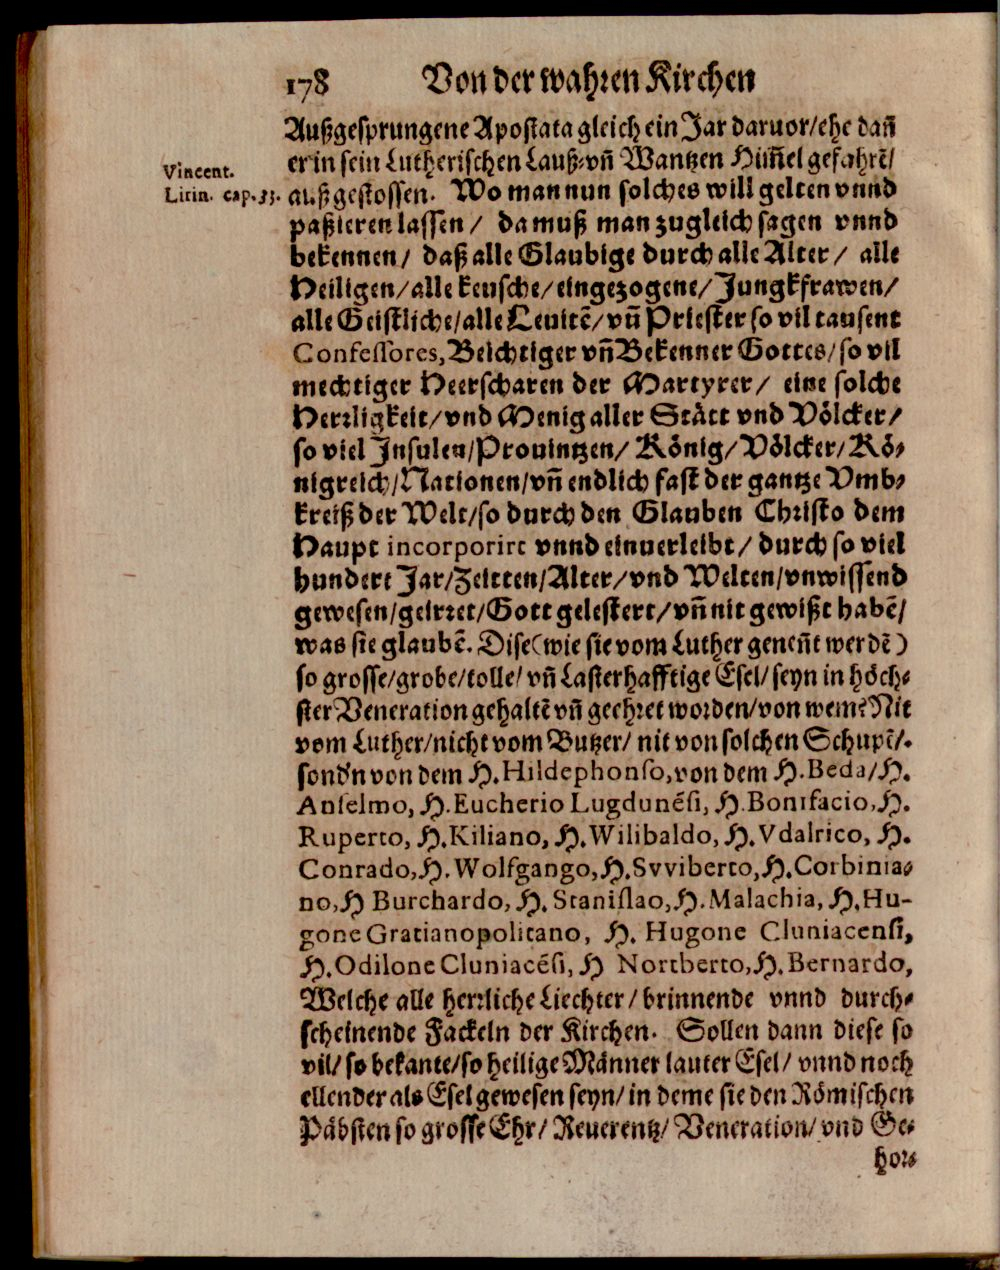 178 Von der wahren Kirchen
Außgesprungene Apostata gleich ein Jar daruor/ehe dañ
er in sein Lutherischen Lauß⸗vñ Wantzen Him̃el gefahrẽ/
Vincent.
Lirin. cap. 33.
außgestossen. Wo man nun solches will gelten vnnd
paßieren lassen / da muß man zugleich sagen vnnd
bekennen / daß alle Glaubige durch alle Alter / alle
Heiligen/alle keusche/eingezogene/Jungkfrawen/
alle Geistliche/alle Leuitẽ/vñ Priester so vil tausent
Confessores, Beichtiger vñ Bekenner Gottes/so vil
mechtiger Heerscharen der Martyrer / eine solche
Herrligkeit/vnd Menig aller Stått vnd Völcker/
so viel Insulen/Prouintzen/ König/Völcker/Kö⸗
nigreich/Nationen/vñ endlich fast der gantze Vmb⸗
kreiß der Welt/so durch den Glauben Christo dem
Haupt incorporirt vnnd einuerleibt/ durch so viel
hundert Jar/Zeitten/Alter/vnd Welten/vnwissend
gewesen/geirret/Gott gelestert/vñ nit gewißt habẽ/
was sie glaubẽ. Dise (wie sie vom Luther geneñt werdẽ)
so grosse/grobe/tolle/vñ Lasterhafftige Esel/seyn in höch⸗
ster Veneration gehaltẽ vñ geehret worden/von wem? Nit
vom Luther/nicht vom Butzer/ nit von solchen Schupẽ/.
sond'n von dem H. Hildephonso, von dem H. Beda/H.
Anselmo, H. Eucherio Lugdunẽsi, H. Bonifacio, H.
Ruperto, H. Kiliano, H. Wilibaldo, H. Vdalrico, H.
Conrado, H. Wolfgango, H. Svviberto, H. Corbinia⸗
no, H Burchardo, H. Stanislao, H. Malachia, H. Hu-
gone Gratianopolitano, H. Hugone Cluniacensi,
H. Odilone Cluniacẽsi, H Nortberto, H. Bernardo,
Welche alle herrliche Liechter / brinnende vnnd durch⸗
scheinende Fackeln der Kirchen. Sollen dann diese so
vil/ so bekante/so heilige Männer lauter Esel/ vnnd noch
ellender als Esel gewesen seyn/ in deme sie den Römischen
Päbsten so grosse Ehr/ Reuerentz/ Veneration/ vnd Ge⸗
hor⸗